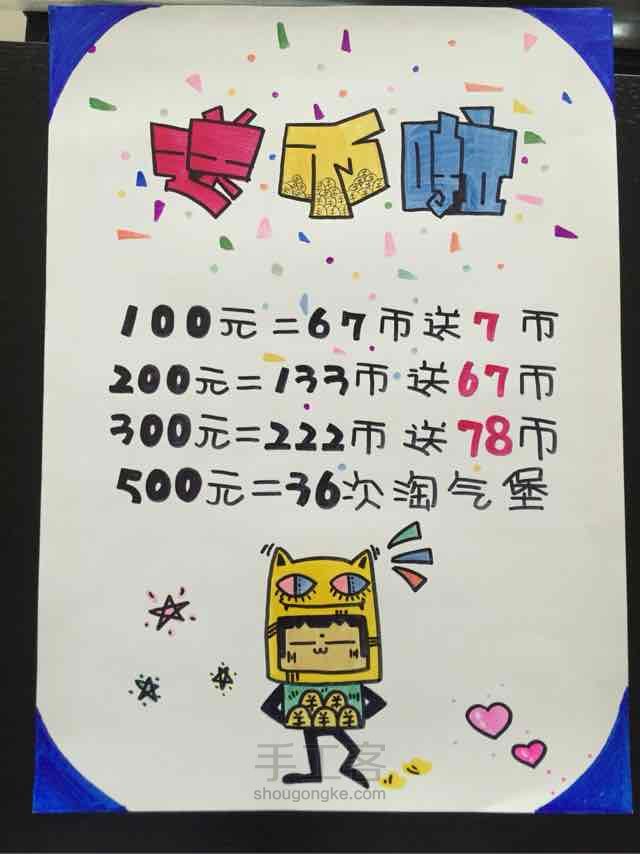 送币啦
100元=67币送7币
200元=133币送67币
300元=222币送78币
500元=36次淘气堡
手工客
shougongke.com